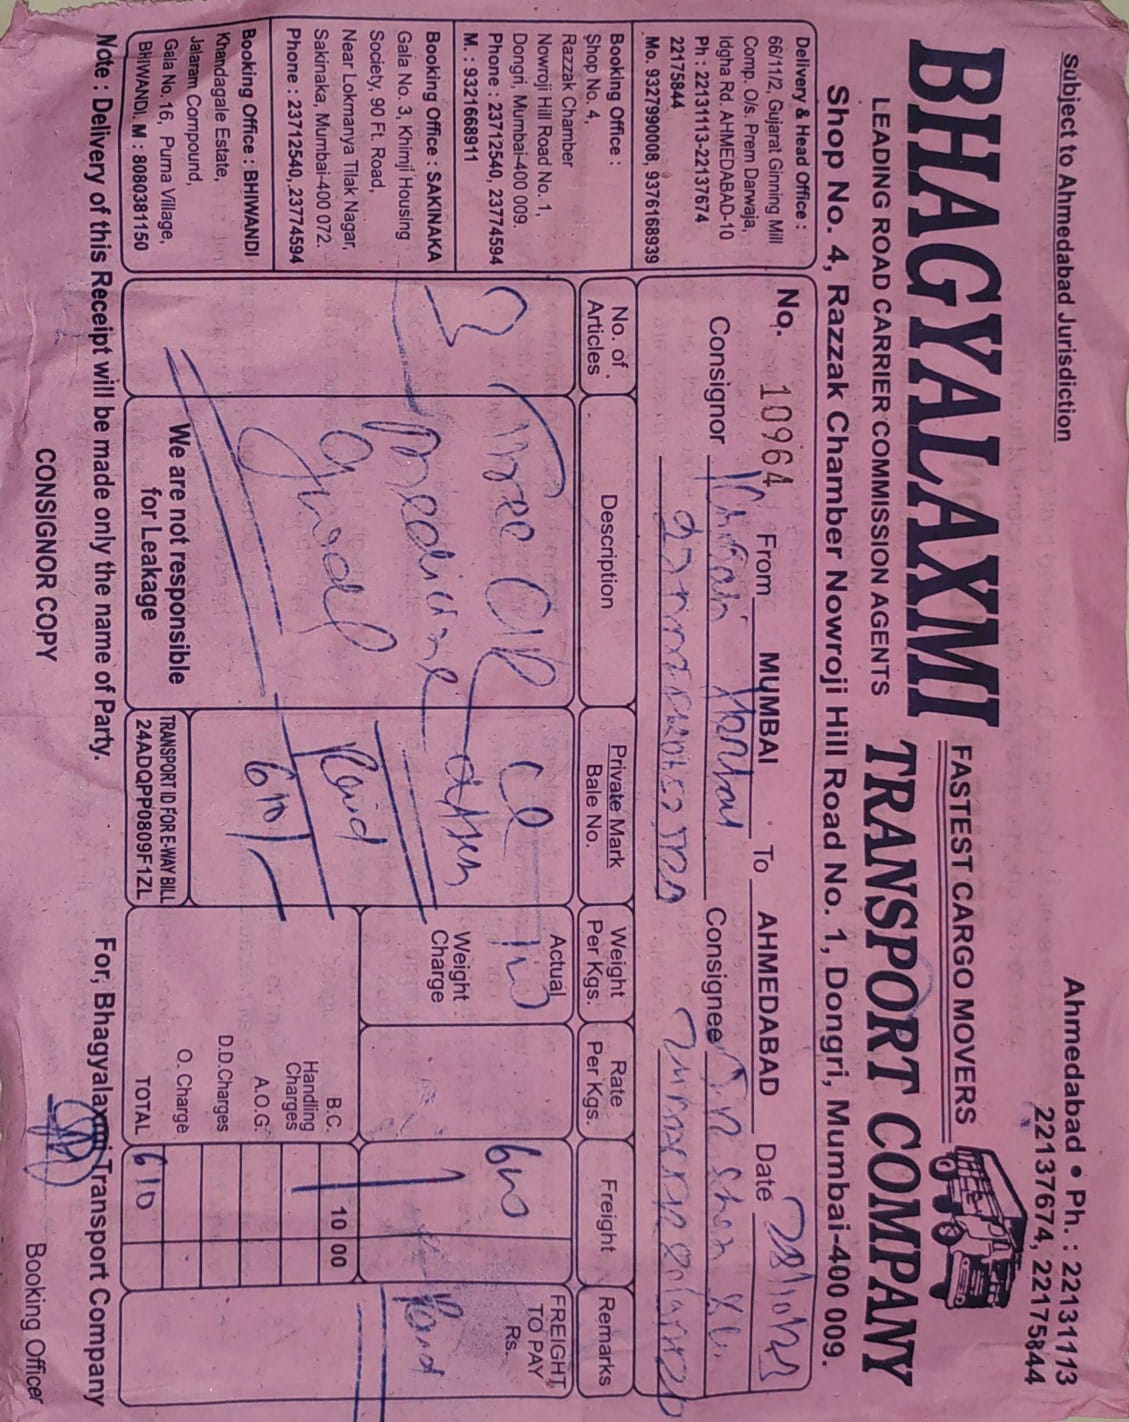 Subject to Ahmedabad Jurisdiction
Ahmedabad • Ph. : 22131113
22137674, 22175844
BHAGYALAXMI TRANSPORT COMPANY
FASTEST CARGO MOVERS
LEADING ROAD CARRIER COMMISSION AGENTS
Shop No. 4, Razzak Chamber Nowroji Hill Road No. 1, Dongri, Mumbai-400 009.
Delivery & Head Office :
66/11/2, Gujarat Ginning Mill
Comp. O/s. Prem Darwaja,
Idgha Rd. AHMEDABAD-10
Ph : 22131113-22137674
22175844
Mo. 9327990008, 9376168939
Booking Office :
Shop No. 4,
Razzak Chamber
Nowroji Hill Road No. 1,
Dongri, Mumbai-400 009.
Phone : 23712540, 23774594
M. : 9321668911
Booking Office : SAKINAKA
Gala No. 3, Khimji Housing
Society, 90 Ft. Road,
Near Lokmanya Tilak Nagar,
Sakinaka, Mumbai-400 072.
Phone : 23712540, 23774594
Booking Office : BHIWANDI
Khandagale Estate,
Jalaram Compound,
Gala No. 16, Purna Village,
BHIWANDI. M : 8080381150
No. 10964 From MUMBAI To AHMEDABAD Date
Consignor Consignee
No. of Articles
Description
Private Mark Bale No.
Weight Per Kgs.
Rate Per Kgs.
Freight
Remarks
Medicine
Good
Paid
610/-
Actual
Weight Charge
600
FREIGHT TO PAY Rs.
Paid
B.C. 10 00
Handling Charges
A.O.G.
D.D.Charges
O. Charge
TOTAL 610
We are not responsible
for Leakage
TRANSPORT ID FOR E-WAY BILL
24ADQPP0809F1ZL
Note : Delivery of this Receipt will be made only the name of Party.
For, Bhagyalaxmi Transport Company
CONSIGNOR COPY
Booking Officer